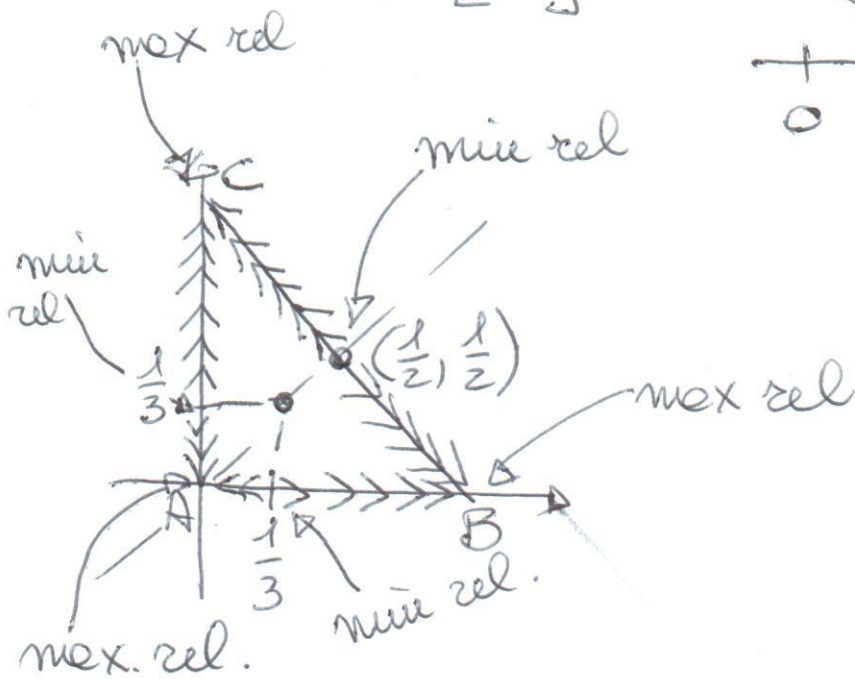 max rel
0
C
min rel
min
rel
1/3
(1/2, 1/2)
max rel
A
1/3
B
min rel.
max. rel.